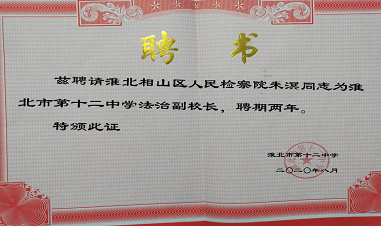 聘书
兹聘请淮北相山区人民检察院朱溟同志为淮
北市第十二中学法治副校长，聘期两年。
特颁此证
淮北市第十二中学
二〇二〇年八月